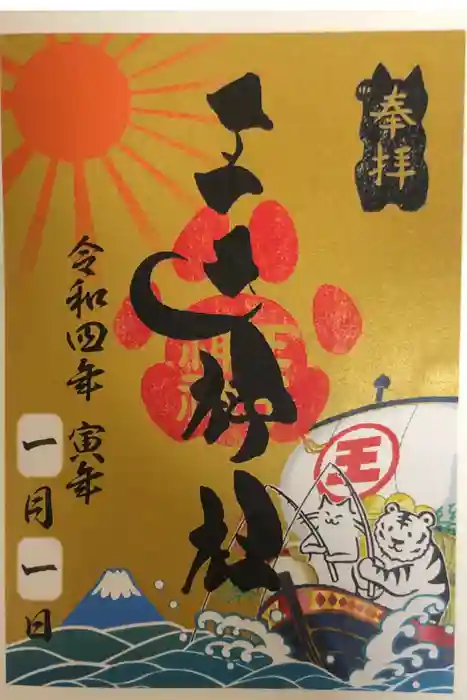 奉拝
王子神社
令和四年 寅年
一月一日
王